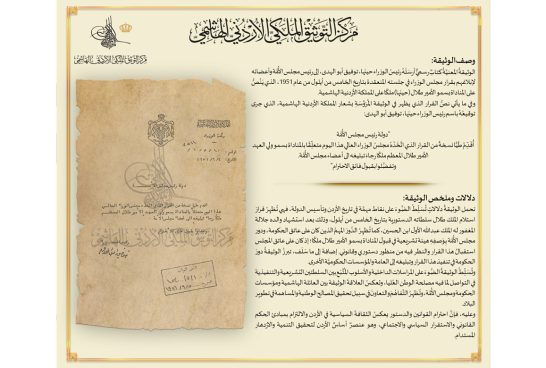 مركز التوثيق الملكي الأردني الهاشمي
مركز التوثيق الملكي الأردني الهاشمي
وصف الوثيقة:
الوثيقة المعنيّة كتاب رسمي أرسله رئيس الوزراء حينها، توفيق أبو الهدى، إلى رئيس مجلس الأمّة وأعضائه
لإبلاغهم بقرار رئيس الوزراء في جلسته المنعقدة بتاريخ الخامس من أيلول من عام 1951، الذي ينصّ
على المناداة بسمو الأمير طلال (حينها) ملكًا على المملكة الأردنية الهاشمية.
وفي ما يأتي نصّ القرار الذي يظهر في الوثيقة المروّسة بشعار المملكة الأردنية الهاشمية، الذي جرى
توقيعه باسم رئيس الوزراء حينها، توفيق أبو الهدى:
"دولة رئيس مجلس الأمّة
أقدم طيًّا نسخة من القرار الذي اتّخذه مجلس الوزراء العالي هذا اليوم متعلّقًا بالمناداة بسمو ولي العهد
الأمير طلال المعظم ملكًا رجاء تبليغه إلى أعضاء مجلس الأمّة
وتفضلوا بقبول فائق الاحترام"
دلالات وملخص الوثيقة:
تحمل الوثيقة دلالات تسلّط الضوء على نقاط مهمّة في تاريخ الأردن وتأسيس الدولة، فهي تُظهر قرار
استلام الملك طلال سلطاته الدستورية بتاريخ الخامس من أيلول، وذلك بعد استشهاد والده جلالة
المغفور له الملك عبدالله الأول ابن الحسين، كما تُظهر الدور المهمّ الذين كان على عاتق الحكومة، ودور
مجلس الأمّة بوصفه هيئة تشريعية في قبول المناداة بسمو الأمير طلال ملكًا؛ إذ كان على عاتق المجلس
استقبال هذا القرار والنظر فيه من منظور دستوري وقانوني، إضافة إلى ما سبق، تُبرز الوثيقة دورَ
الحكومة في تنفيذ هذا القرار وتبليغه إلى العامة والمؤسسات الحكوميّة الأخرى
وتُسلّط الوثيقة الضوء على المراسلات الداخلية والأسلوب المتّبع بين السلطتين التشريعية والتنفيذية
في التواصل لما فيه مصلحة الوطن العليا، وتعكس العلاقة الوثيقة بين العائلة الهاشمية ومؤسسات
الحكومة ومجلس الأمّة، وتُظهر التفاهم والتعاون في سبيل تحقيق المصالح الوطنية والمساهمة في تطوير
البلاد.
وعليه، فإنّ احترام القوانين والدستور يعكس الثقافة السياسية في الأردن والالتزام بمبادئ الحكم
القانوني والاستقرار السياسي والاجتماعي، وهو عنصرٌ أساسٌ لأردن لتحقيق التنمية والازدهار
المستدام.